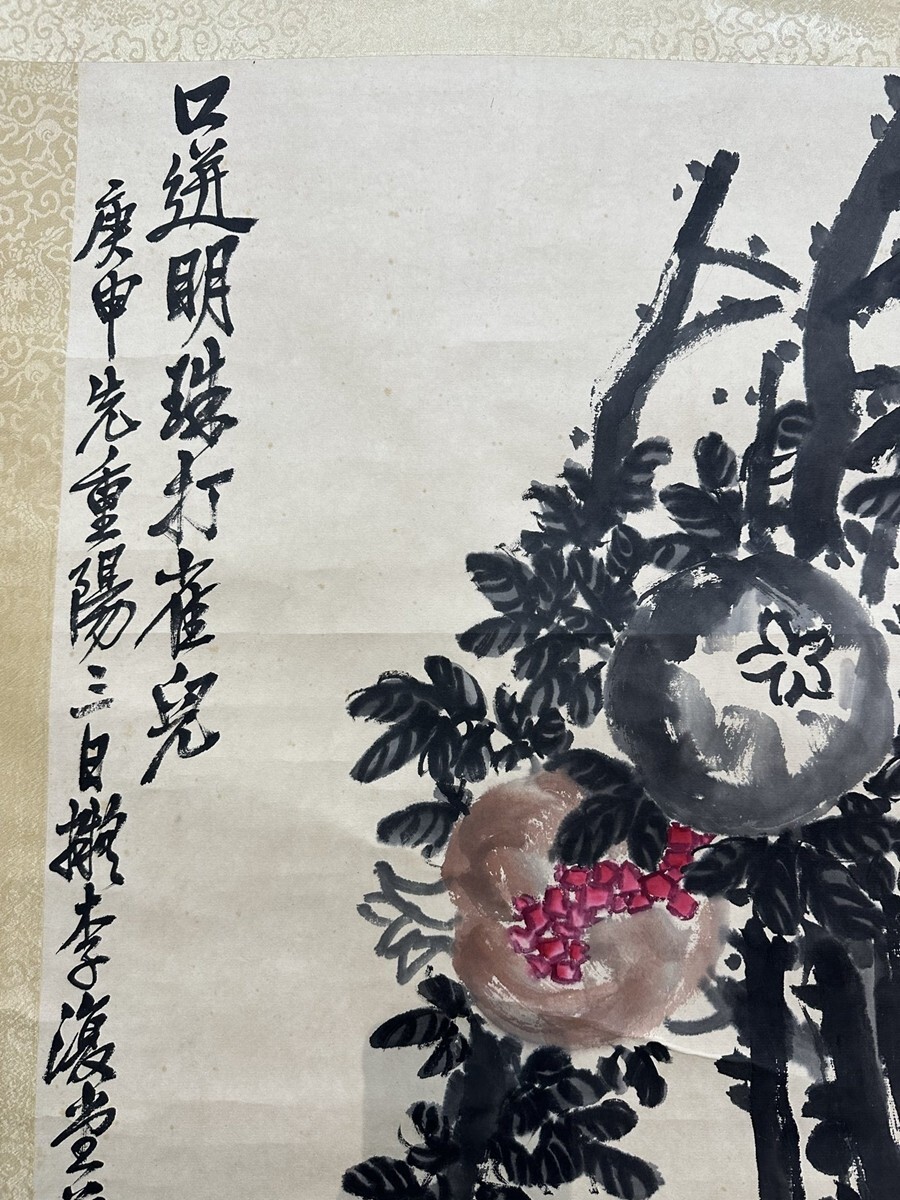 口迸明珠打雀兒
庚申先重陽三日擬李復堂